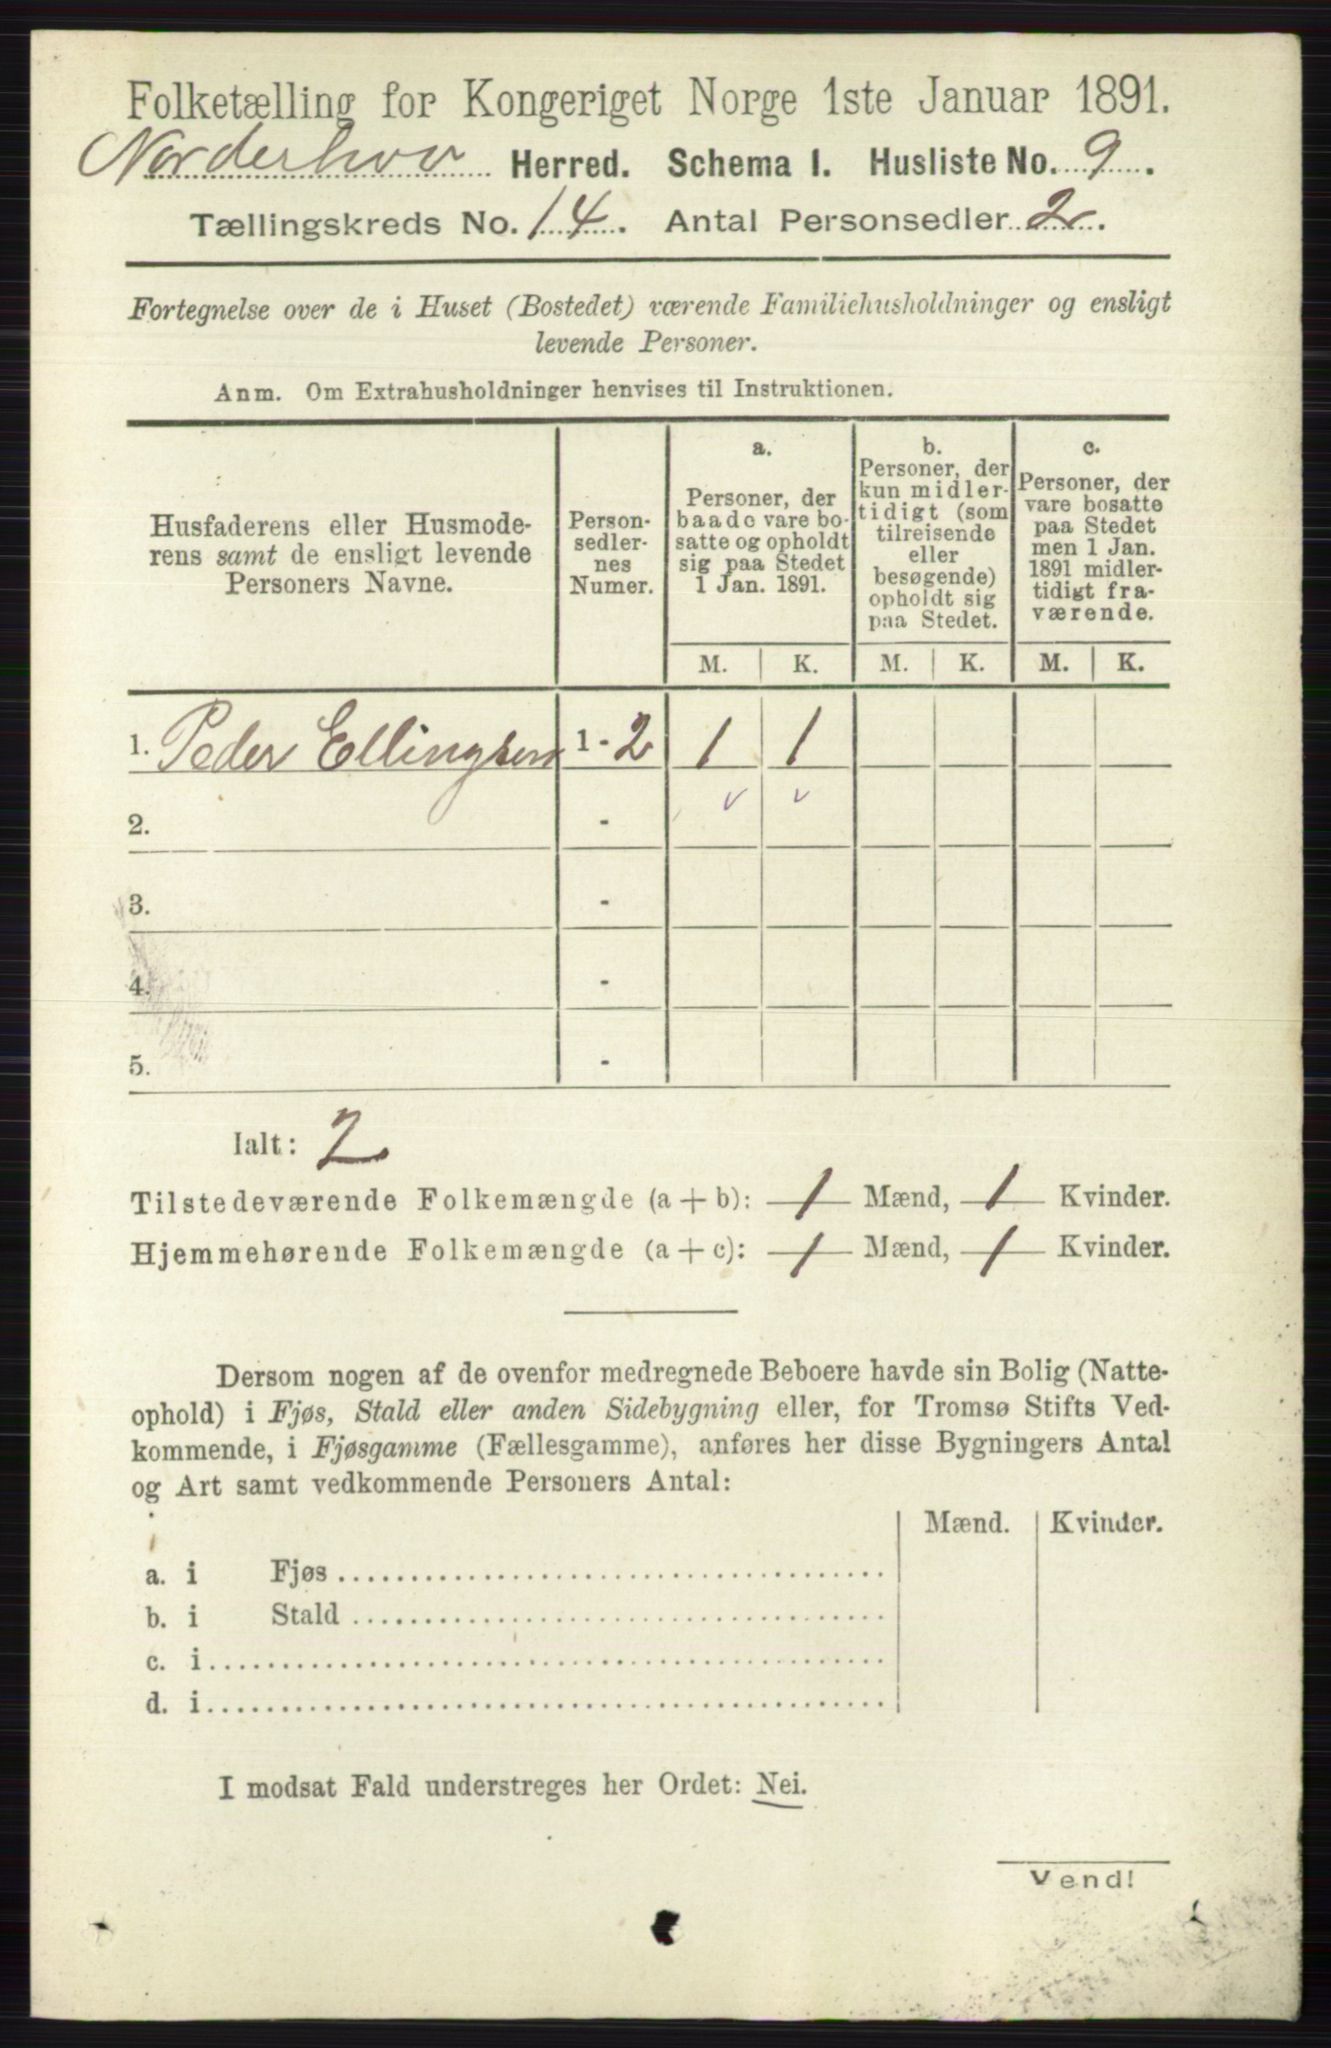 Folketælling for Kongeriget Norge 1ste Januar 1891.
Norderhov Herred. Schema I. Husliste No. 9.
Tællingskreds No. 14. Antal Personsedler 2.
Fortegnelse over de i Huset (Bostedet) værende Familiehusholdninger og ensligt
levende Personer.
Anm. Om Extrahusholdninger henvises til Instruktionen.
Husfaderens eller Husmode-
rens samt de ensligt levende
Personers Navne.
Person-
sedler-
nes
Numer.
a.
Personer, der
baade vare bo-
satte og opholdt
sig paa Stedet
1 Jan. 1891.
b.
Personer, der
kun midler-
tidigt (som
tilreisende
eller
besøgende)
opholdt sig
paa Stedet.
c.
Personer, der
vare bosatte
paa Stedet
men 1 Jan.
1891 midler-
tidigt fra-
værende.
M. K. M. K. M. K.
1. Peder Ellingsen 1 - 2 1 1
v v
2. -
3. -
4. -
5. -
Ialt: 2
Tilstedeværende Folkemængde (a + b): 1 Mænd, 1 Kvinder.
Hjemmehørende Folkemængde (a + c): 1 Mænd, 1 Kvinder.
Dersom nogen af de ovenfor medregnede Beboere havde sin Bolig (Natte-
ophold) i Fjøs, Stald eller anden Sidebygning eller, for Tromsø Stifts Ved-
kommende, i Fjøsgamme (Fællesgamme), anføres her disse Bygningers Antal
og Art samt vedkommende Personers Antal:
Mænd. Kvinder.
a. i Fjøs
b. i Stald
c. i
d. i
I modsat Fald understreges her Ordet: Nei.
Vend!